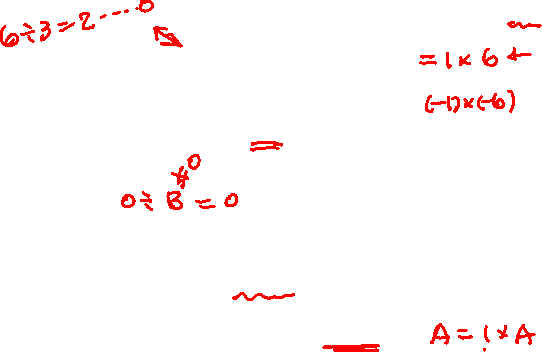 6÷3=2......0
=1×6
(-1)×(-6)
≠0
0÷B=0
A=1×A